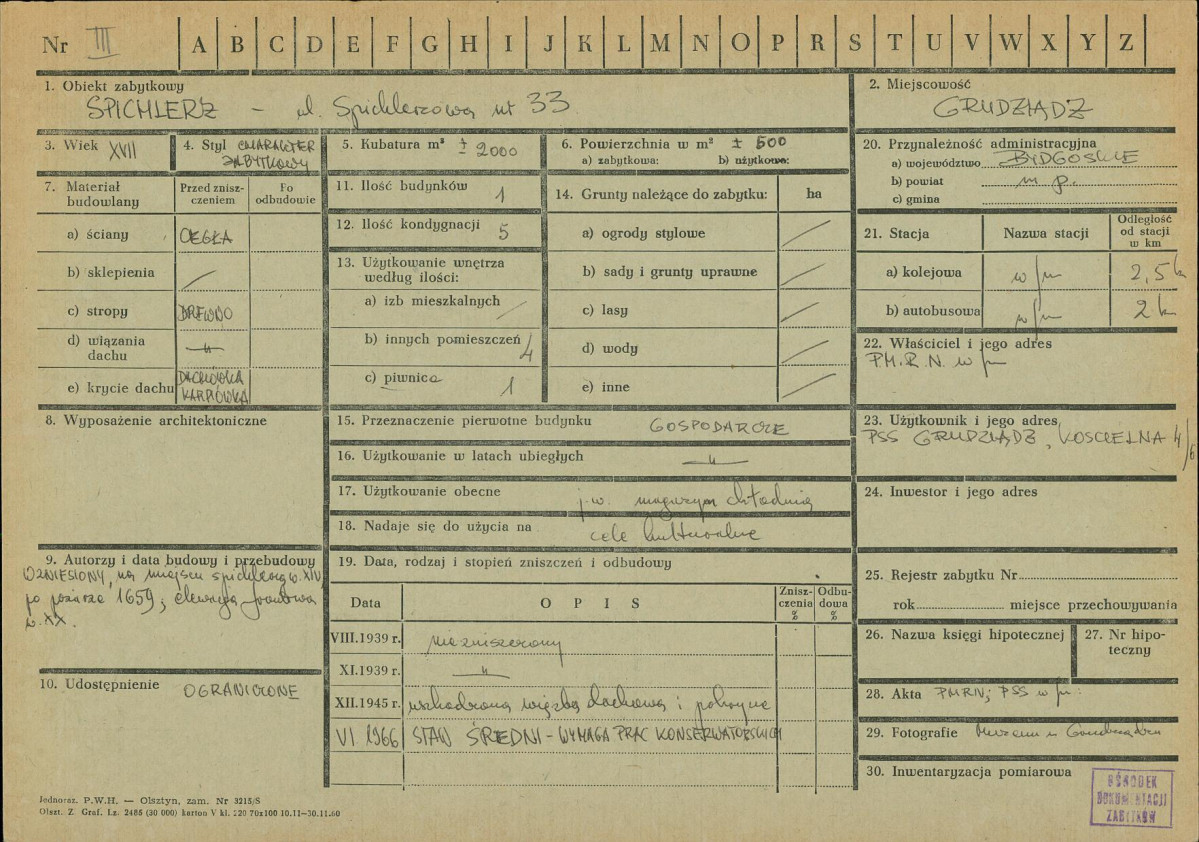 Nr III A B C D E F G H I J K L M N O P R S T U V W X Y Z
1. Obiekt zabytkowy
SPICHLERZ – ul. Spichlerzowa nr 33
2. Miejscowość
GRUDZIĄDZ
3. Wiek XVII
4. Styl CHARAKTER
ZABYTKOWY
5. Kubatura m³ ± 2000
6. Powierzchnia w m² ± 500
a) zabytkowa: b) użytkowa:
7. Materiał
budowlany
Przed znisz-
czeniem
Po
odbudowie
a) ściany CEGŁA
b) sklepienia /
c) stropy DREWNO
d) wiązania
dachu —"—
e) krycie dachu DACHÓWKA
KARPIÓWKA
8. Wyposażenie architektoniczne
9. Autorzy i data budowy i przebudowy
WZNIESIONY, na miejscu spichlerza w. XIV,
po pożarze 1659; elewacja frontowa
w. XX.
10. Udostępnienie OGRANICZONE
11. Ilość budynków 1
12. Ilość kondygnacji 5
13. Użytkowanie wnętrza
według ilości:
a) izb mieszkalnych /
b) innych pomieszczeń 4
c) piwnica 1
14. Grunty należące do zabytku: ha
a) ogrody stylowe /
b) sady i grunty uprawne /
c) lasy /
d) wody /
e) inne /
15. Przeznaczenie pierwotne budynku GOSPODARCZE
16. Użytkowanie w latach ubiegłych —"—
17. Użytkowanie obecne j.w. magazyn chłodnia
18. Nadaje się do użycia na cele kulturalne
19. Data, rodzaj i stopień zniszczeń i odbudowy
Data O P I S Znisz-
czenia
%
Odbu-
dowa
%
VIII.1939 r. niezniszczony
XI.1939 r. —"—
XII.1945 r. uszkodzona więźba dachowa i pokrycie
VI 1966 STAN ŚREDNI – WYMAGA PRAC KONSERWATORSKICH
20. Przynależność administracyjna
a) województwo BYDGOSKIE
b) powiat m p.
c) gmina
21. Stacja Nazwa stacji Odległość
od stacji
w km
a) kolejowa w/m 2,5 km
b) autobusowa w/m 2 km
22. Właściciel i jego adres
P.M.R.N. w/m
23. Użytkownik i jego adres
PSS GRUDZIĄDZ, KOŚCIELNA 4/6
24. Inwestor i jego adres
25. Rejestr zabytku Nr
rok miejsce przechowywania
26. Nazwa księgi hipotecznej
27. Nr hipo-
teczny
28. Akta PMRN; PSS w/m.
29. Fotografie Muzeum w Grudziądzu
30. Inwentaryzacja pomiarowa
OŚRODEK
DOKUMENTACJI
ZABYTKÓW
Jednoraz. P.W.H. — Olsztyn, zam. Nr 3215/S
Olszt. Z. Graf. Lz. 2485 (30 000) karton V kl. 220 70x100 10.11—30.11.60